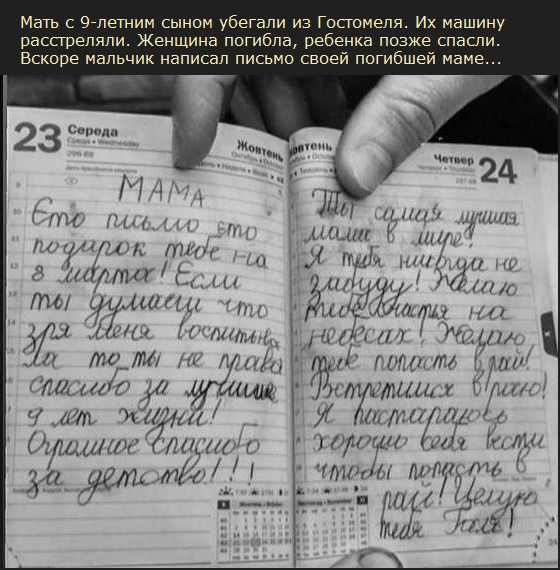 Мать с 9-летним сыном убегали из Гостомеля. Их машину
расстреляли. Женщина погибла, ребенка позже спасли.
Вскоре мальчик написал письмо своей погибшей маме...
23 Середа
Среда • Wednesday
296-69
Жовтень
Октябрь • October
МАМА
Ето письмо ето
подарок тебе на
8 марта! Если
ты думаеш что
зря меня воспитыва
ла то ты не права
спасибо за лучшие
9 лет жизни!
Огромное спасибо
за детство!!!
Жовтень
Четвер 24
Ты самая лучшая
мама в мире!
Я тебя никогда не
забуду! Желаю
тебе счастья на
небесах! Желаю
тебе попасть в рай!
Встретимся в раю!
Я пастараюсь
хорошо себя вести
чтобы попасть в
рай! Целую
тебя Толя!